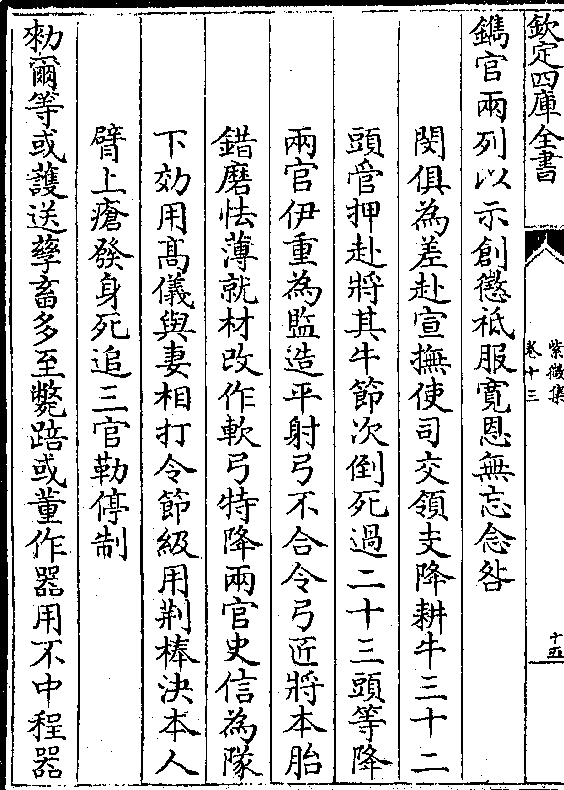 欽定四庫全書
紫微集
卷十三
十五
鐫官兩列以示創懲祗服寛恩無忘念咎
閔俱為差赴宣撫使司交領支降耕牛三十二
頭管押赴將其牛節次倒死過二十三頭等降
兩官伊重為監造平射弓不合令弓匠將本胎
錯磨怯薄就材改作軟弓特降兩官史信為隊
下効用髙儀與妻相打令節級用荆棒決本人
臂上瘡發身死追三官勒停制
勑爾等或䕶送孳畜多至斃踣或董作器用不中程器